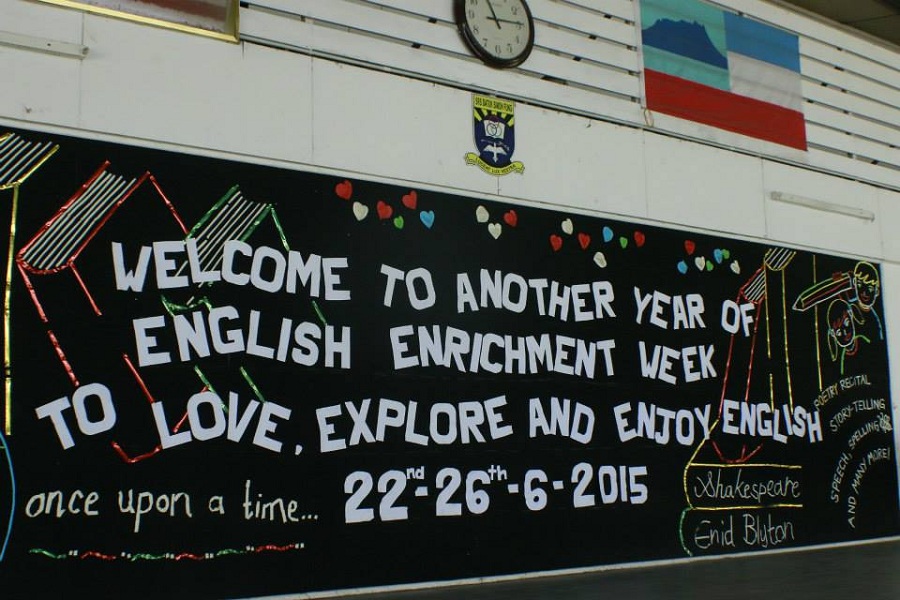 WELCOME TO ANOTHER YEAR OF
ENGLISH ENRICHMENT WEEK
TO LOVE, EXPLORE AND ENJOY ENGLISH
22nd-26th-6-2015
once upon a time...
Shakespeare
Enid Blyton
POETRY RECITAL
STORY-TELLING
SPEECH, SPELLING
AND MANY MORE!